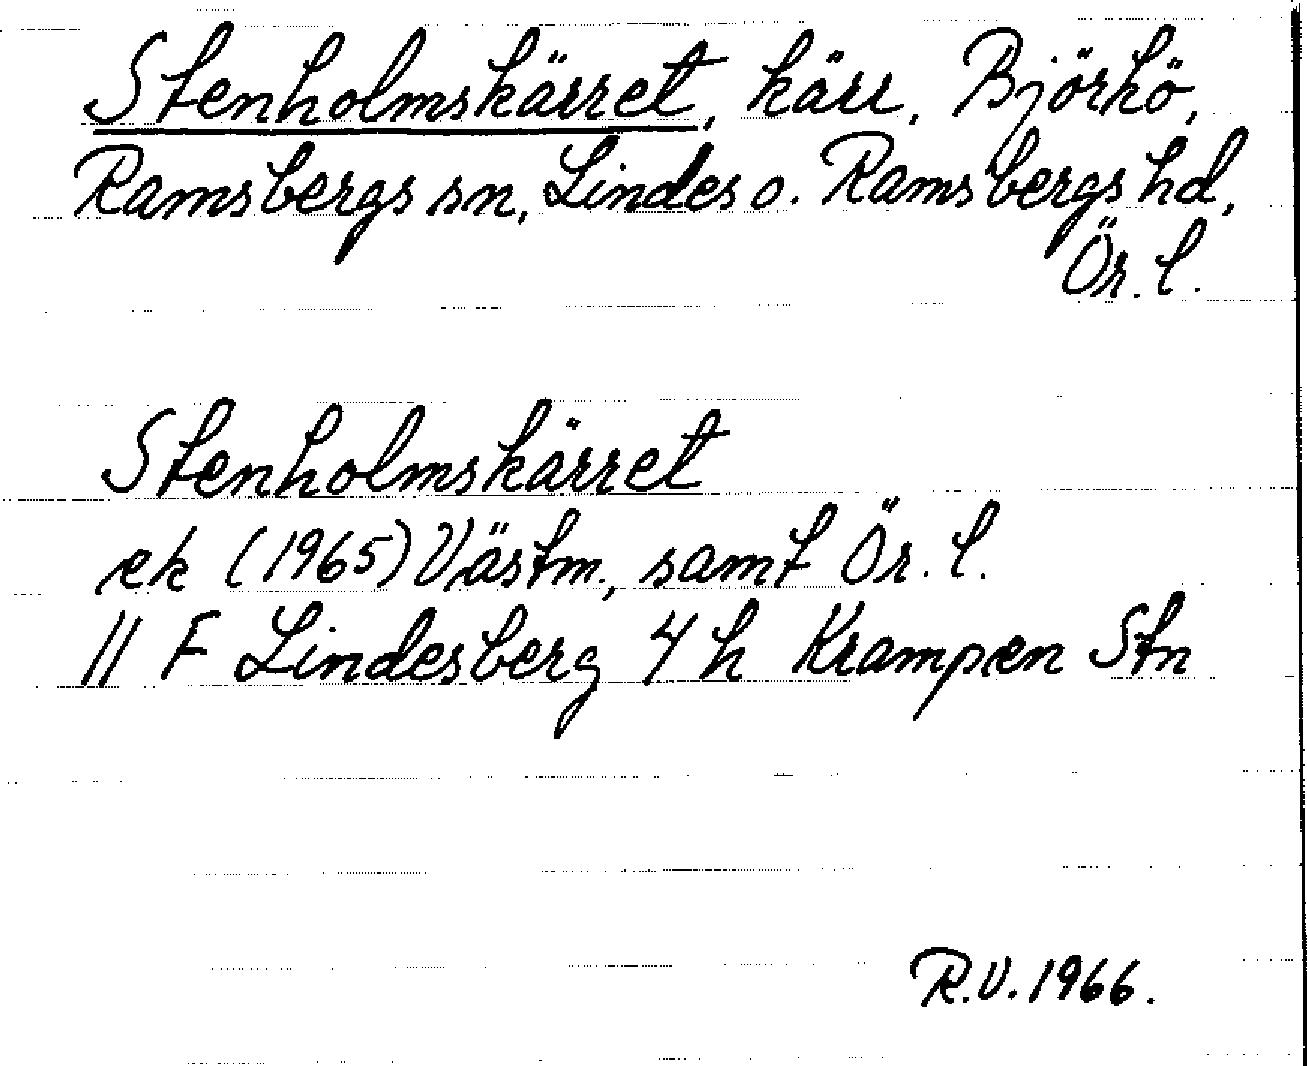 Stenholmskärret, kärr, Björkö,
Ramsbergs sn, Lindes o. Ramsbergs hd,
Ör. l.
Stenholmskärret
ek (1965) Västm., samt Ör. l.
11 F Lindesberg 4 h Krampen Stn
R.V. 1966.